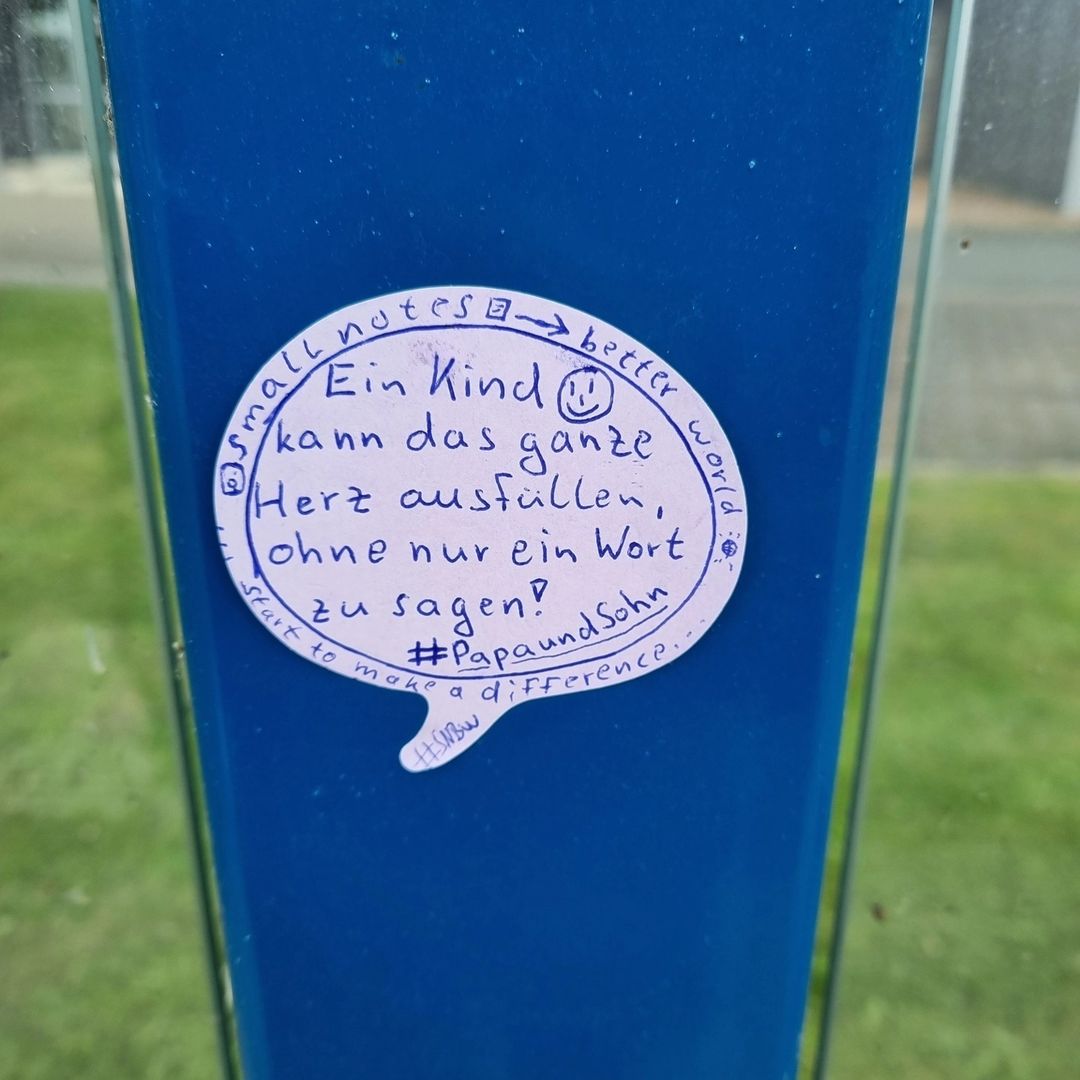 small notes → better world
Ein Kind
kann das ganze
Herz ausfüllen,
ohne nur ein Wort
zu sagen!
#PapaundSohn
... start to make a difference...
#SNBW